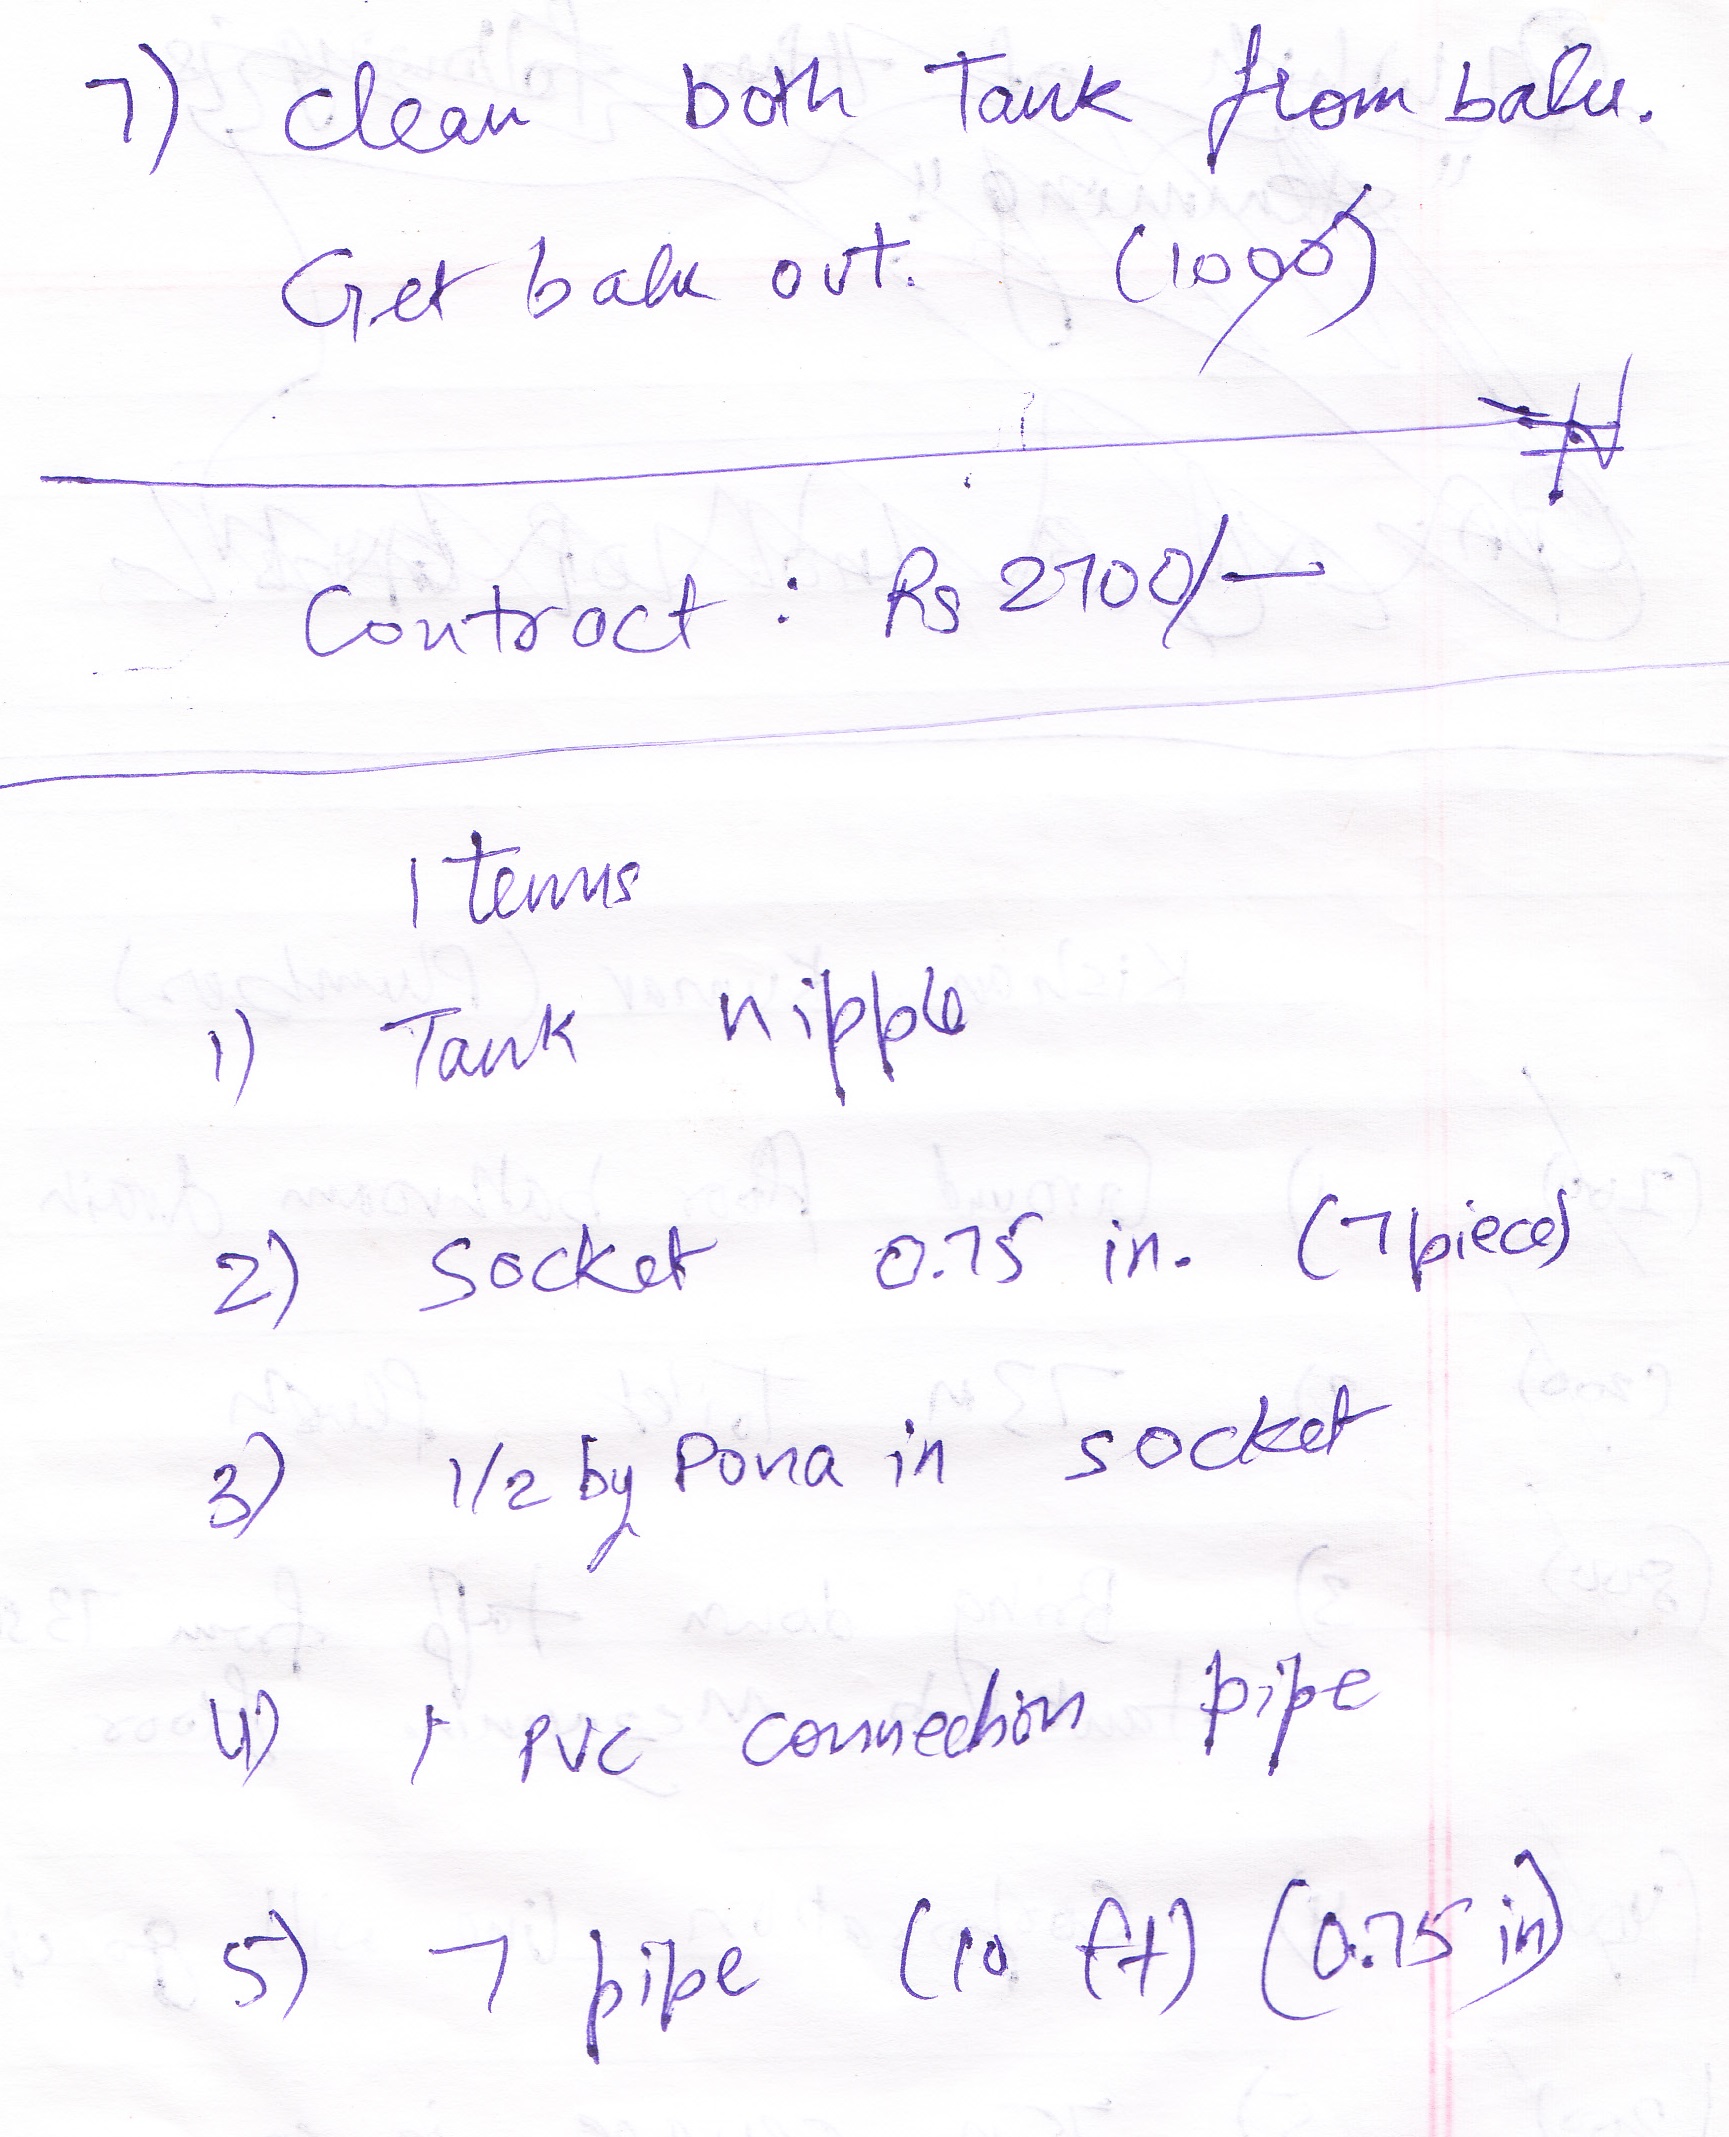 7) Clean both Tank from balu.
Get balu out. (1000)
Contract : Rs 2700/-
Items
1) Tank nipple
2) Socket 0.75 in. (7 pieces)
3) 1/2 by Pona in socket
4) 1 PVC connection pipe
5) 7 pipe (10 ft) (0.75 in)